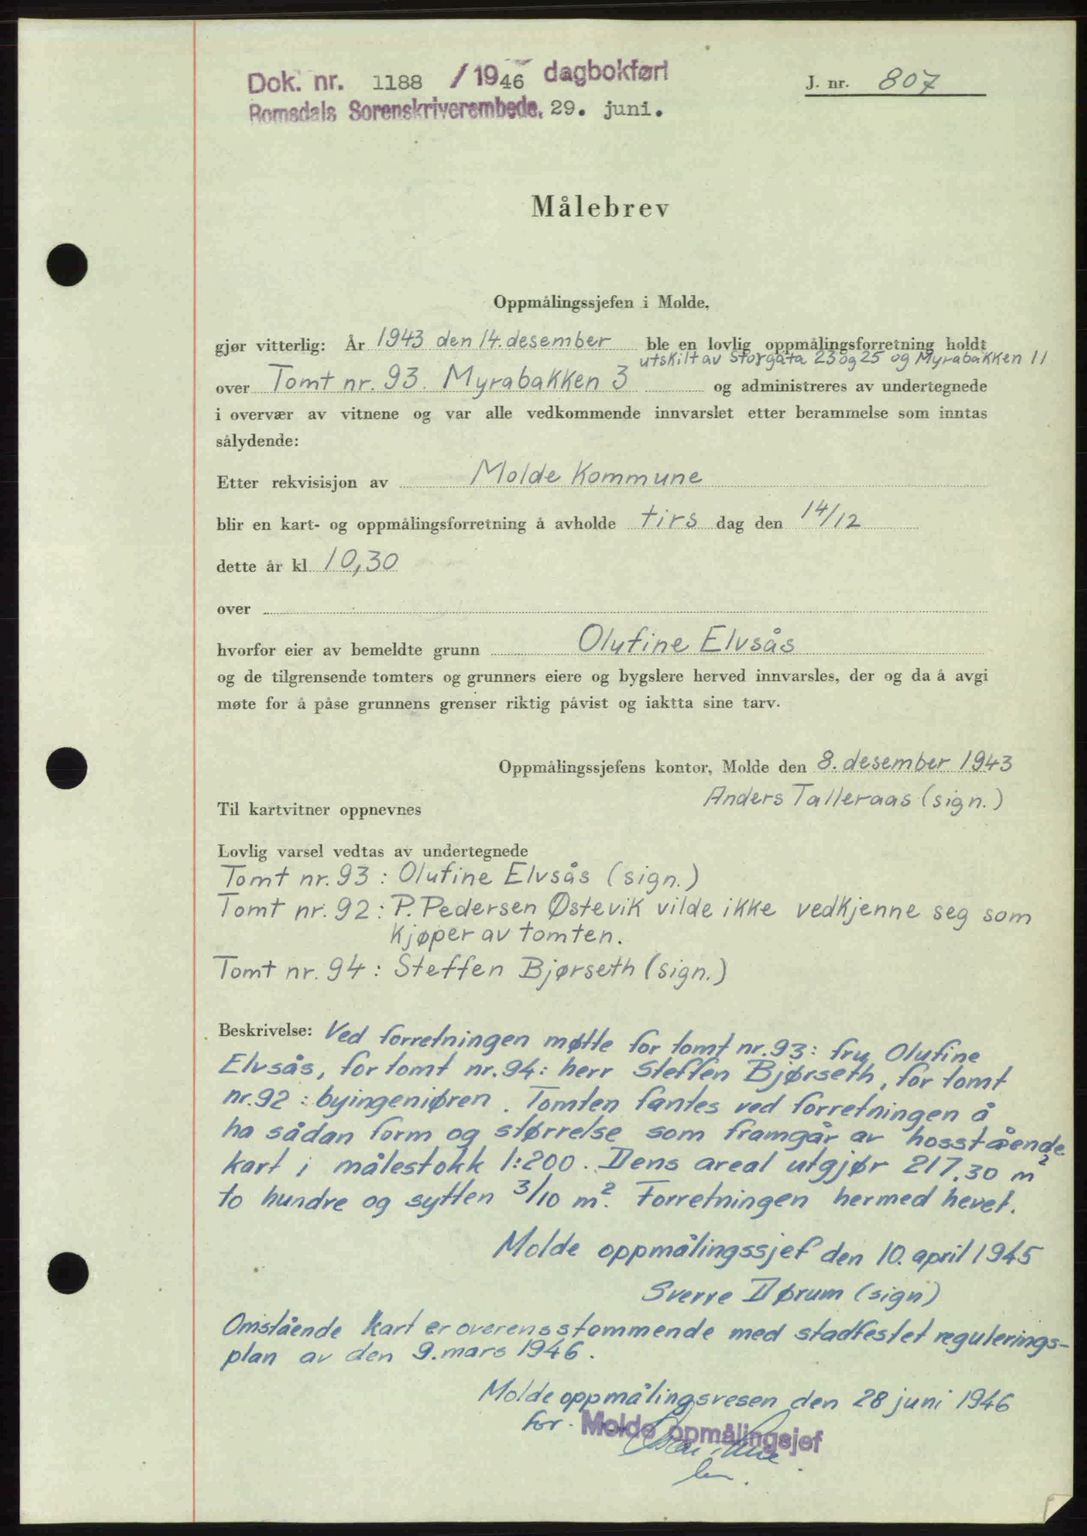 Dok. nr. 1188 / 1946 dagbokført
Romsdals Sorenskriverembede, 29. juni.
J. nr. 807
Målebrev
Oppmålingssjefen i Molde,
gjør vitterlig: År 1943 den 14. desember ble en lovlig oppmålingsforretning holdt
utskilt av Storgata 23 og 25 og Myrabakken 11
over Tomt nr. 93. Myrabakken 3 og administreres av undertegnede
i overvær av vitnene og var alle vedkommende innvarslet etter berammelse som inntas
sålydende:
Etter rekvisisjon av Molde Kommune
blir en kart- og oppmålingsforretning å avholde tirs dag den 14/12
dette år kl 10,30
over
hvorfor eier av bemeldte grunn Olufine Elvsås
og de tilgrensende tomters og grunners eiere og bygslere herved innvarsles, der og da å avgi
møte for å påse grunnens grenser riktig påvist og iaktta sine tarv.
Oppmålingssjefens kontor, Molde den 8. desember 1943
Anders Talleraas (sign.)
Til kartvitner oppnevnes
Lovlig varsel vedtas av undertegnede
Tomt nr. 93 : Olufine Elvsås (sign.)
Tomt nr. 92 : P. Pedersen Østevik vilde ikke vedkjenne seg som
kjøper av tomten.
Tomt nr. 94 : Steffen Bjørseth (sign.)
Beskrivelse: Ved forretningen møtte for tomt nr. 93: fru Olufine
Elvsås, for tomt nr. 94: herr Steffen Bjørseth, for tomt
nr. 92 : byingeniøren. Tomten fantes ved forretningen å
ha sådan form og størrelse som framgår av hosstående
kart i målestokk 1:200. Dens areal utgjør 217,30 m²
to hundre og sytten 3/10 m². Forretningen hermed hevet.
Molde oppmålingssjef den 10. april 1945
Sverre Dørum (sign)
Omstående kart er overensstemmende med stadfestet regulerings-
plan av den 9. mars 1946.
Molde oppmålingsvesen den 28 juni 1946
for. Molde opmålingsjef